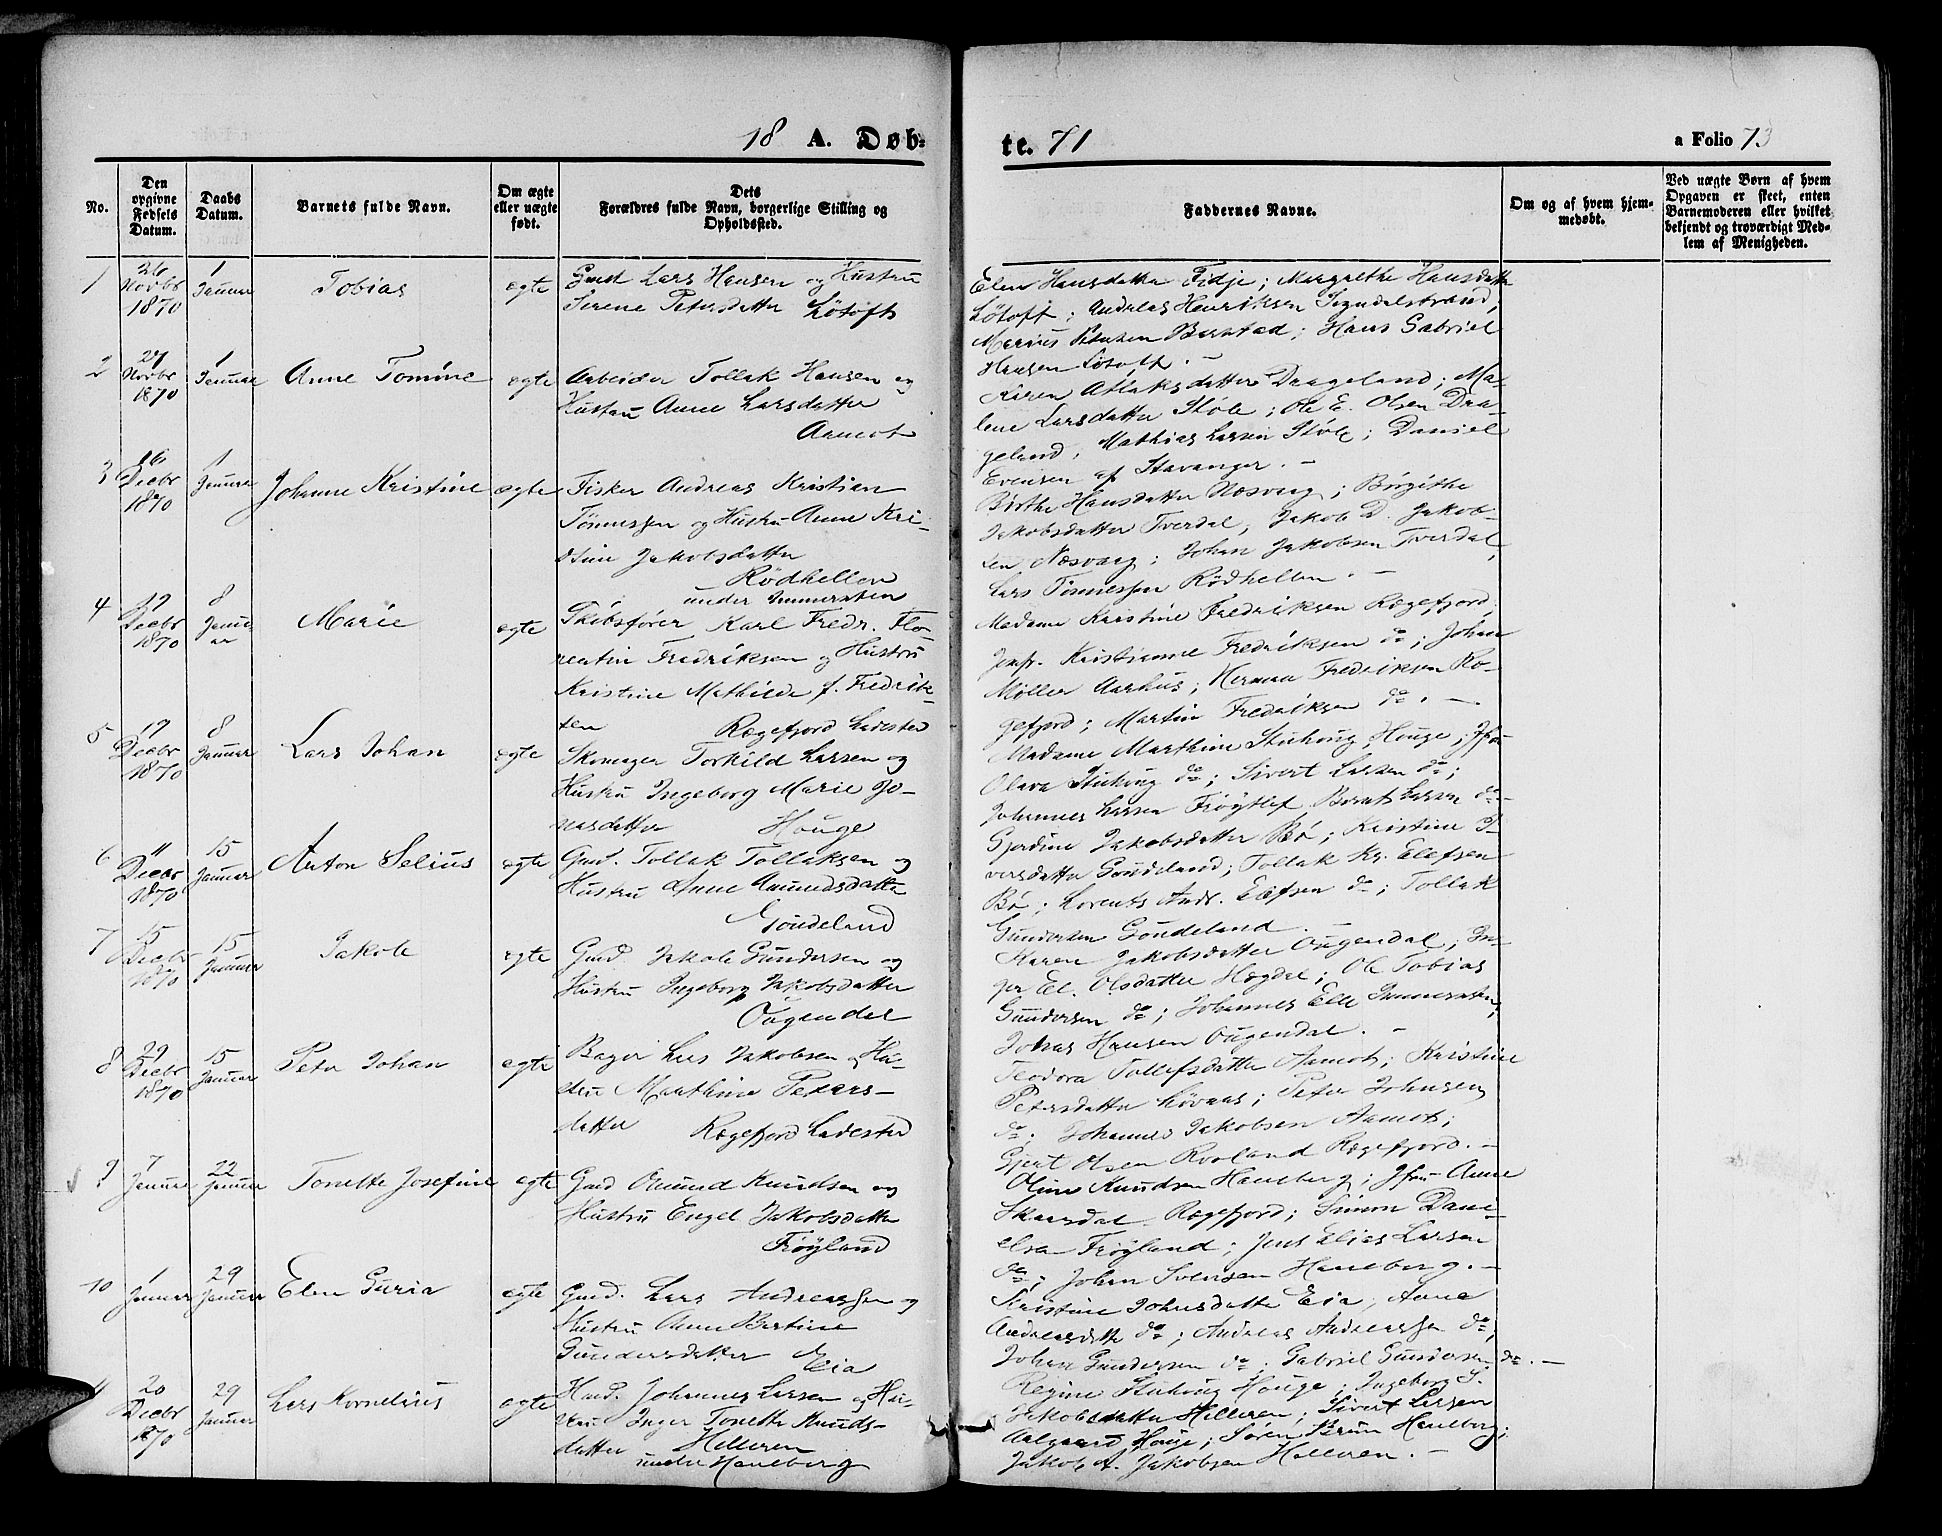 18 A. Døb-
te. 71
a Folio 73
No.
Den opgivne Fødsels Datum.
Daabs Datum.
Barnets fulde Navn.
Om ægte eller uægte født.
Dets Forældres fulde Navn, borgerlige Stilling og Opholdssted.
Faddernes Navne.
Om og af hvem hjemmedøbt.
Ved uægte Børn af hvem Opgaven er skeet, enten Barnemoderen eller hvilket bekjendt og troværdigt Medlem af Menigheden.
1
26 Novbr 1870
1 Januar
Tobias
ægte
Gmd Lars Hansen og Hustru
Serene Petersdatter Løtoft
Elen Hansdatter Fidje; Margrethe Hansdatter
Løtoft; Andreas Henriksen Sogndalstrand;
Marius Hansen Barstad; Hans Gabriel
Hansen Løtoft. -
2
27 Novbr 1870
1 Januar
Anne Tomine
ægte
Arbeider Tollak Hansen og
Hustru Anne Larsdatter
Aamot
Karen Atlaksdatter Drageland; Ma-
lene Larsdatter Støle; Ole E. Olsen Dra-
geland, Mathias Larsen Støle; Daniel
Evensen af Stavanger. -
3
16 Decbr 1870
1 Januar
Johanne Kristine
ægte
Fisker Andreas Kristian
Tønnessen og Hustru Anne Kri-
stine Jakobsdatter
Rødhelleren
under Immerstein
Birthe Hansdatter Næsvaag; Birgithe
Jakobsdatter Tverdal, Jakob D. Jakob-
sen Næsvaag; Johan Jakobsen Tverdal,
Lars Tønnessen Rødhellen. -
4
19 Decbr 1870
8 Janu-
ar
Marie
ægte
Skibsfører Karl Fredr. Flo-
rentin Fredriksen og Hustru
Kristine Mathilde f. Fredrik-
sen Rægefjord Ladested
Madame Kristine Fredriksen Rægefjord.
Jomfr. Kristianne Fredriksen do; Johan
Møller Aarhus; Herman Fredriksen Ræ-
gefjord; Martin Fredriksen do. -
5
19 Decbr 1870
8 Januar
Lars Johan
ægte
Skomager Torkild Larsen og
Hustru Ingeborg Marie Jo-
nasdatter Houge
Madame Marthine Stuhoug Houge; Jfru
Olava Stuhoug do; Sivert Larsen do;
Johannes Larsen Frøytlof Bernt Larsen do-
6
11 Decbr 1870
15 Januar
Anton Selius
ægte
Gmd. Tollak Tollaksen og
Hustru Anne Aamundsdatter
Goudeland
Gjordine Jakobsdatter Bø; Kristine I-
versdatter Goudeland; Tollak Kr. Elefsen
Bø; Lorents Andr. Elefsen do; Tollak
Gundersen Goudeland. -
7
15 Decbr 1870
15 Januar
Jakob
ægte
Gmd. Jakob Gundersen og
Hustru Ingeborg Jakobsdatter
Ougendal
Karen Jakobsdatter Ougendal; In-
ger El. Olsdatter Hægdal; Ole Tobias
Gundersen do; Johannes Elle Immerstein;
Johas Hansen Ougendal. -
8
29 Decbr 1870
15 Januar
Peter Johan
ægte
Bager Lars Jakobsen og Hu-
stru Marthine Peters-
datter Rægefjord Ladested
Teodora Tollefsdatter Aamot; Kristine
Petersdatter Løvaas; Peter Johnsen
do; Johannes Jakobsen Aamot;
Gjert Olsen Rooland Rægefjord. -
9
7 Januar
22 Januar
Tonette Josefine
ægte
Gmd Omund Knudsen og
Hustru Engel Jakobsdatter
Frøyland
Oline Knudsen Haneberg; Jfru Anne
Skaarsdal Rægefjord; Simon Dani-
elsen Frøyland; Jens Elias Larsen
do; Johan Svensen Haneberg. -
10
1 Januar
29 Januar
Elen Guria
ægte
Gmd. Lars Andreassen og
Hustru Anne Bertine
Gundersdatter Eia
Kristine Johnsdatter Eia, Anne
Andreasdatter do; Andreas Andreassen do;
Johan Gundersen do. Gabriel Gundersen do. -
20 Decbr 1870
29 Januar
Lars Kornelius
ægte
Husd. Johannes Larsen og Hu-
stru Inger Tonette Knuds-
datter Helleren
under Haneberg
Regine Stuhoug Houge; Ingeborg S.
Jakobsdatter Helleren; Sivert Larsen
Aalgaard Houge; Søren Bruun Haneberg;
Jakob A. Jakobsen Helleren. -